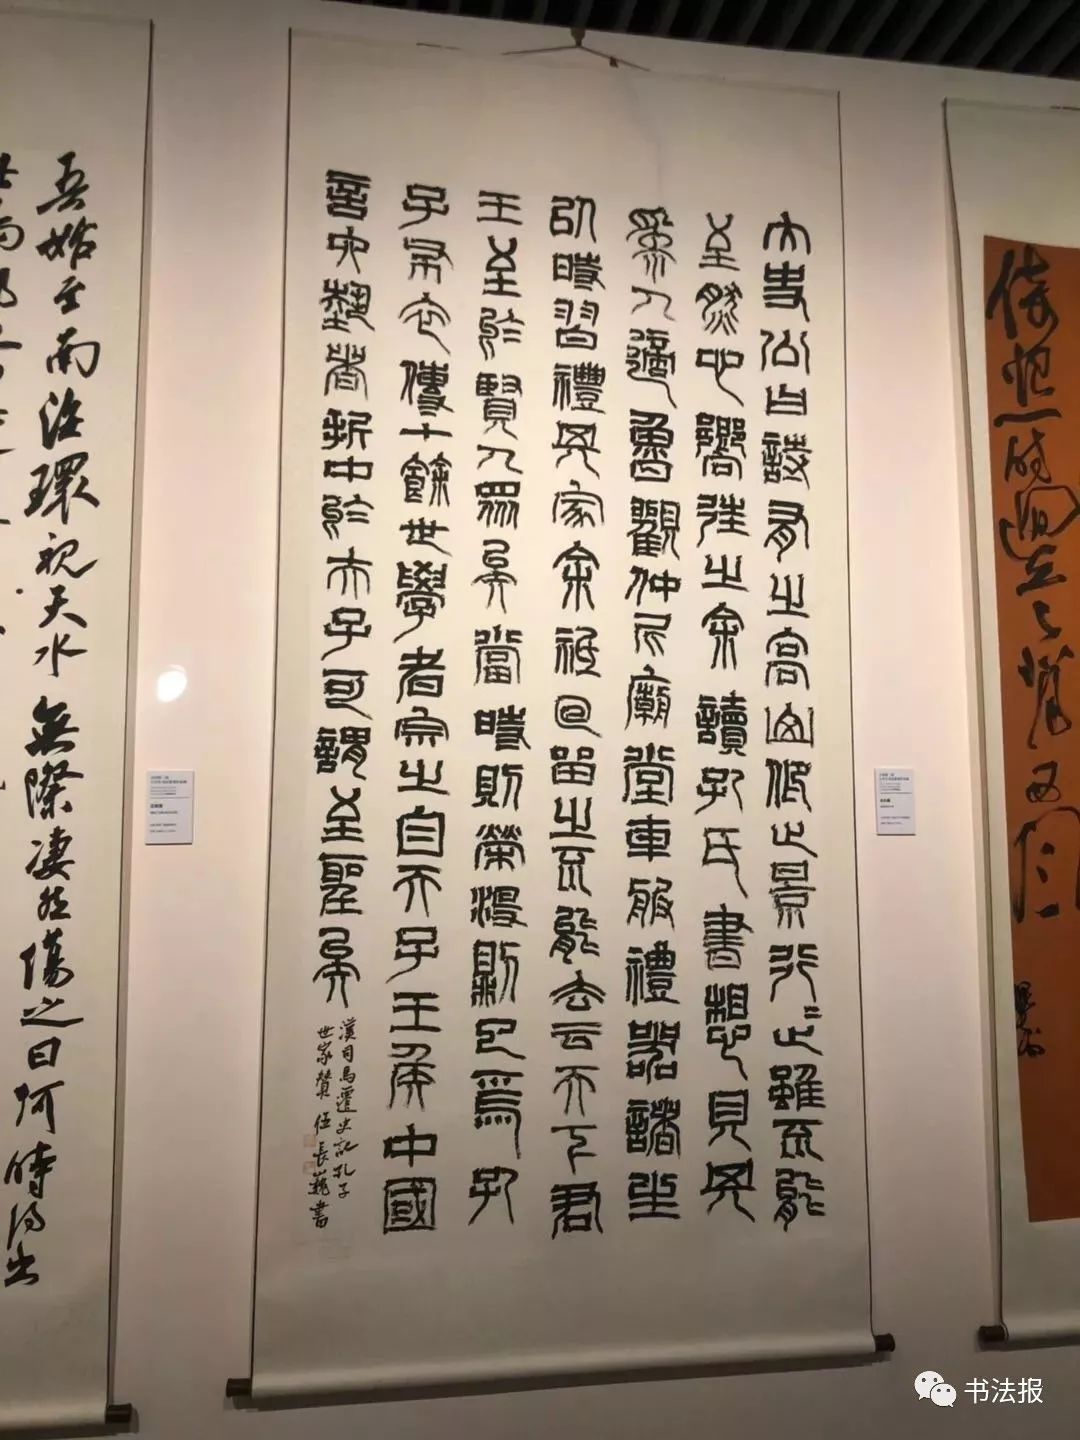 大史公曰詩有之高山仰止景行〻止雖不能
至然心鄉往之余讀孔氏書想見其
爲人適魯觀仲尼廟堂車服禮器諸生
以時習禮其家余祗回留之不能去云天下君
王至於賢人眾矣當時則榮沒則已焉孔
子布衣傳十餘世學者宗之自天子王侯中國
言六藝者折中於夫子可謂至聖矣
漢司馬遷史記孔子
世家贊 任長巍書
吾始至南海環視天水無際淒然傷之曰何時得出
书法报